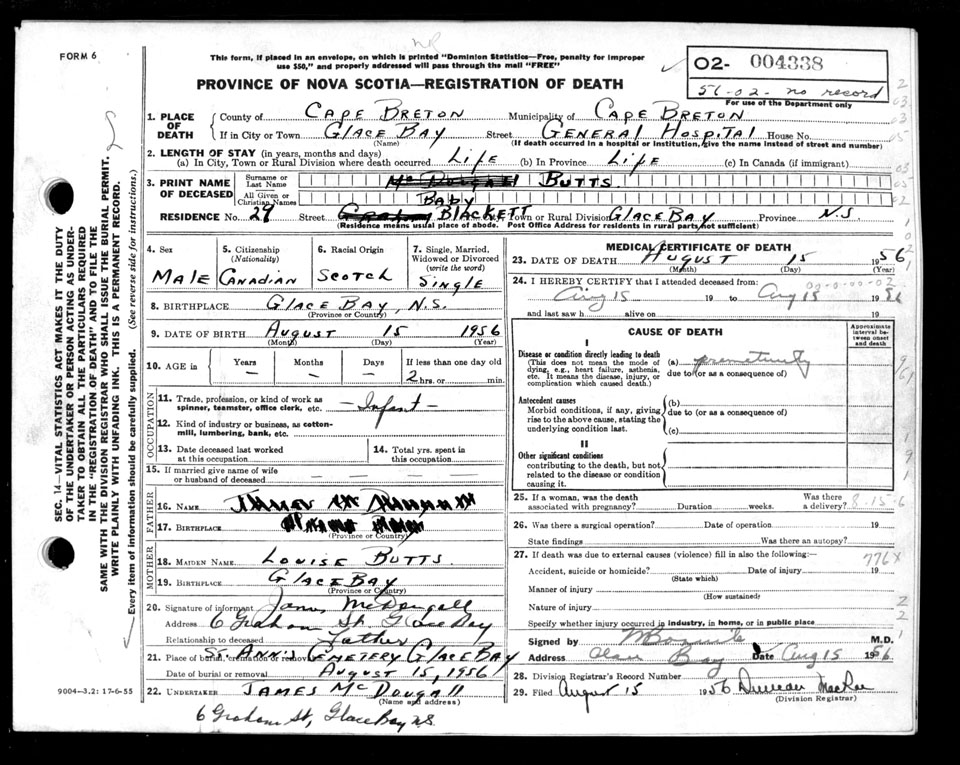 FORM 6
NR
This form, if placed in an envelope, on which is printed "Dominion Statistics—Free, penalty for improper
use $50," and properly addressed will pass through the mail "FREE"
PROVINCE OF NOVA SCOTIA—REGISTRATION OF DEATH
02- 004338
56-02- no record
For use of the Department only
1. PLACE OF DEATH
County of CAPE BRETON Municipality of CAPE BRETON
If in City or Town GLACE BAY Street GENERAL HOSPITAL House No.
(Name) (If death occurred in a hospital or institution, give the name instead of street and number)
2. LENGTH OF STAY (in years, months and days)
(a) In City, Town or Rural Division where death occurred LIFE (b) In Province LIFE (c) In Canada (if immigrant)
3. PRINT NAME OF DECEASED
Surname or Last Name McDougall BUTTS
All Given or Christian Names BABY
RESIDENCE No. 29 Street Graham BLACKETT Town or Rural Division GLACE BAY Province N.S.
(Residence means usual place of abode. Post Office Address for residents in rural parts not sufficient)
4. Sex MALE
5. Citizenship (Nationality) CANADIAN
6. Racial Origin SCOTCH
7. Single, Married, Widowed or Divorced (write the word) SINGLE
8. BIRTHPLACE GLACE BAY, N.S.
(Province or Country)
9. DATE OF BIRTH AUGUST 15 1956
(Month) (Day) (Year)
10. AGE in Years — Months — Days — If less than one day old 2 hrs. or min.
OCCUPATION
11. Trade, profession, or kind of work as
spinner, teamster, office clerk, etc. —Infant—
12. Kind of industry or business, as cotton-
mill, lumbering, bank, etc.
13. Date deceased last worked at this occupation
14. Total yrs. spent in this occupation
15. If married give name of wife
or husband of deceased — — — —
FATHER
16. NAME
17. BIRTHPLACE
(Province or Country)
MOTHER
18. MAIDEN NAME LOUISE BUTTS
19. BIRTHPLACE GLACE BAY
(Province or Country)
20. Signature of informant James McDougall
Address 6 Graham St. Glace Bay
Relationship to deceased Father
21. Place of burial, cremation or removal ST. ANN'S CEMETERY GLACE BAY
Date of burial or removal AUGUST 15, 1956
22. UNDERTAKER JAMES McDOUGALL
(Name and address)
6 Graham St, Glace Bay N.S.
MEDICAL CERTIFICATE OF DEATH
23. DATE OF DEATH AUGUST 15 1956
(Month) (Day) (Year)
24. I HEREBY CERTIFY that I attended deceased from:
Aug 15 19 to Aug 15 1956
and last saw h alive on 19
CAUSE OF DEATH
Approximate interval between onset and death
I
Disease or condition directly leading to death
(This does not mean the mode of
dying, e.g., heart failure, asthenia,
etc. It means the disease, injury, or
complication which caused death.)
(a) prematurity
due to (or as a consequence of)
Antecedent causes
Morbid conditions, if any, giving
rise to the above cause, stating the
underlying condition last.
(b)
due to (or as a consequence of)
(c)
II
Other significant conditions
contributing to the death, but not
related to the disease or condition
causing it.
25. If a woman, was the death
associated with pregnancy? Duration weeks. Was there a delivery? 8-15-6
26. Was there a surgical operation? Date of operation 19
State findings Was there an autopsy?
27. If death was due to external causes (violence) fill in also the following:— 776X
Accident, suicide or homicide? Date of injury 19
(State which)
Manner of injury
(How sustained)
Nature of injury
Specify whether injury occurred in industry, in home, or in public place
Signed by M.D.
Address Glace Bay Date Aug 15 1956
28. Division Registrar's Record Number
29. Filed August 15 1956 Duncan MacRae
(Division Registrar)
SEC. 14—VITAL STATISTICS ACT MAKES IT THE DUTY
OF THE UNDERTAKER OR PERSON ACTING AS UNDER-
TAKER TO OBTAIN ALL THE PARTICULARS REQUIRED
IN THE "REGISTRATION OF DEATH" AND TO FILE THE
SAME WITH THE DIVISION REGISTRAR WHO SHALL ISSUE THE BURIAL PERMIT.
WRITE PLAINLY WITH UNFADING INK. THIS IS A PERMANENT RECORD.
Every item of information should be carefully supplied. (See reverse side for instructions.)
9004—3.2: 17-6-55